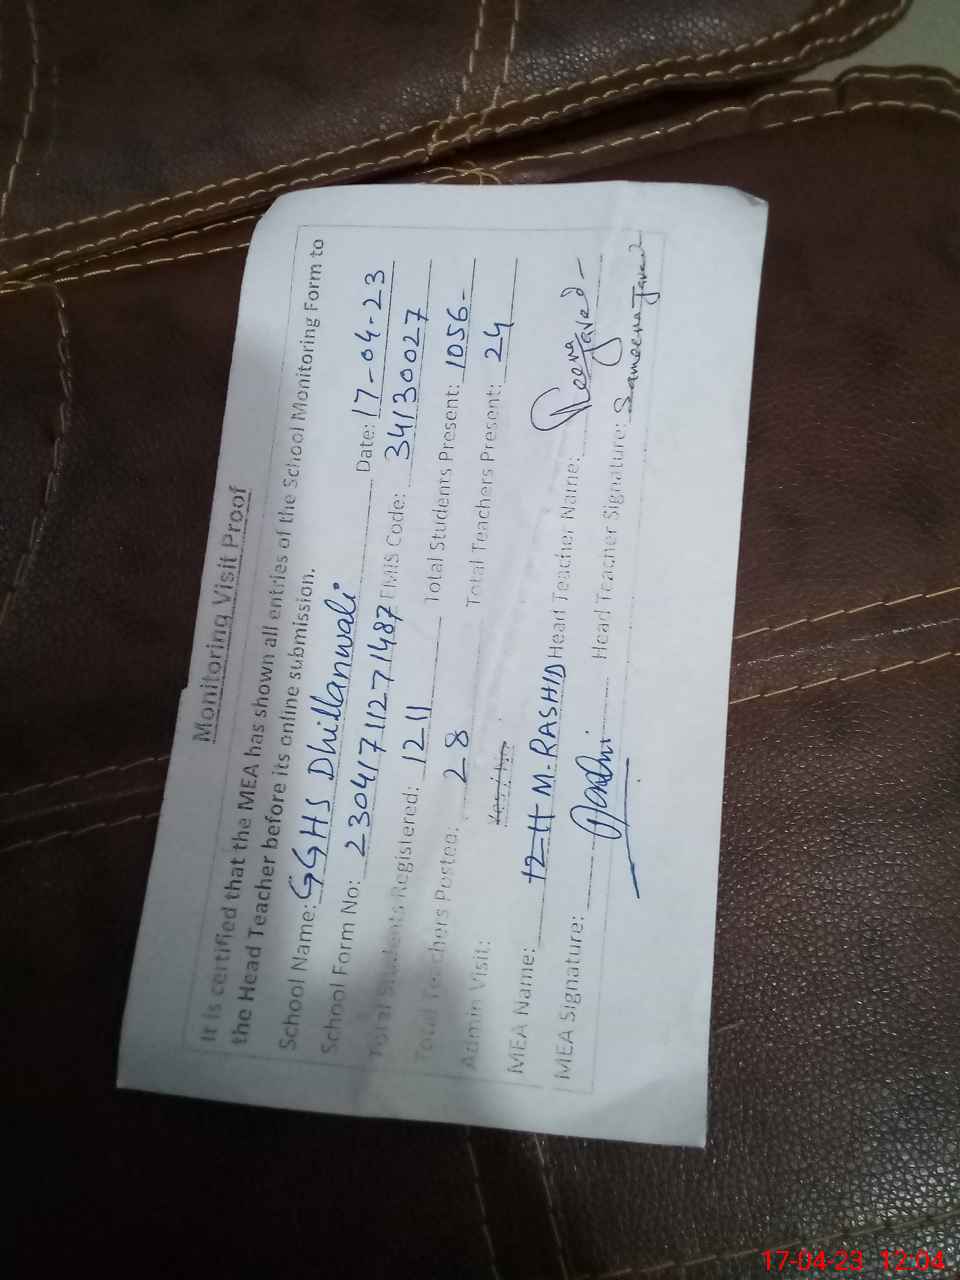 Monitoring Visit Proof
It is certified that the MEA has shown all entries of the School Monitoring Form to
the Head Teacher before its online submission.
School Name: GGHS Dhillanwali Date: 17-04-23
School Form No: 23041711271487 EMIS Code: 34130027
Total Students Registered: 1211 Total Students Present: 1056-
Total Teachers Posted: 28 Total Teachers Present: 24
Admin Visit: Yes / No
MEA Name: 12-11 M.RASHID Head Teacher Name: Javed -
MEA Signature: Head Teacher Signature: Sameena Javed
17-04-23 12:04